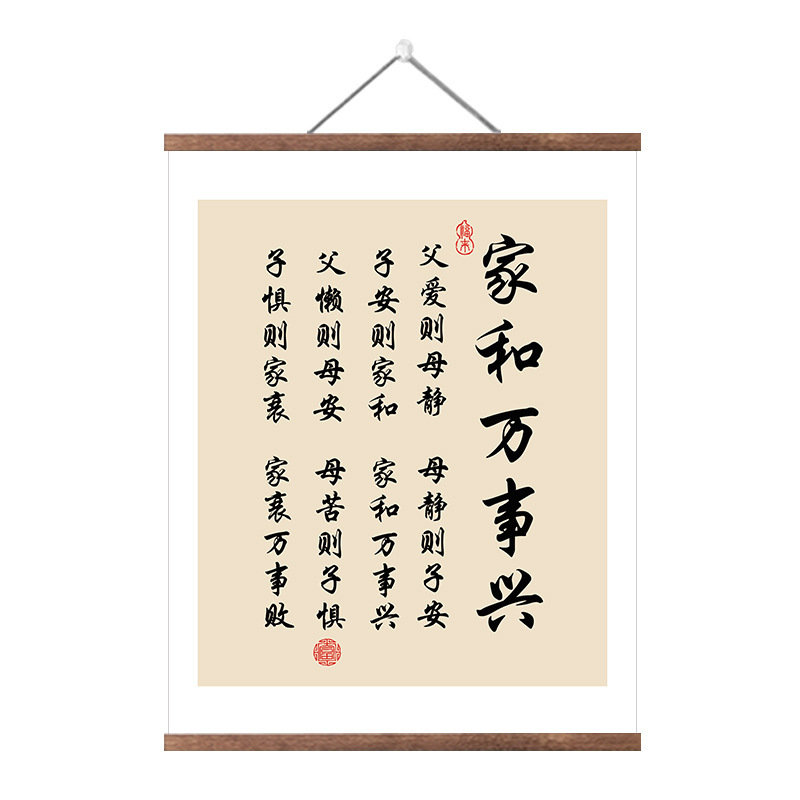 家和万事兴
父爱则母静 母静则子安
子安则家和 家和万事兴
父懒则母安 母苦则子惧
子惧则家衰 家衰万事败